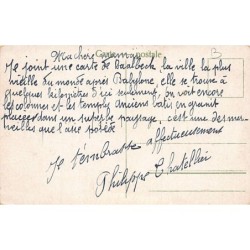 3
Ma chère maman
Carte postale
Je joint une carte de Baalbeck la ville la plus
vieille du monde après Babylone, elle se trouve à
quelques kilomètres d'ici seulement, on voit encore
les colonnes et les temples anciens batis en granit
placées dans un superbe paysage, c'est une des mer-
veilles que l'asie possède
Je t'embrasse affectueusement
Philippe Chatellier